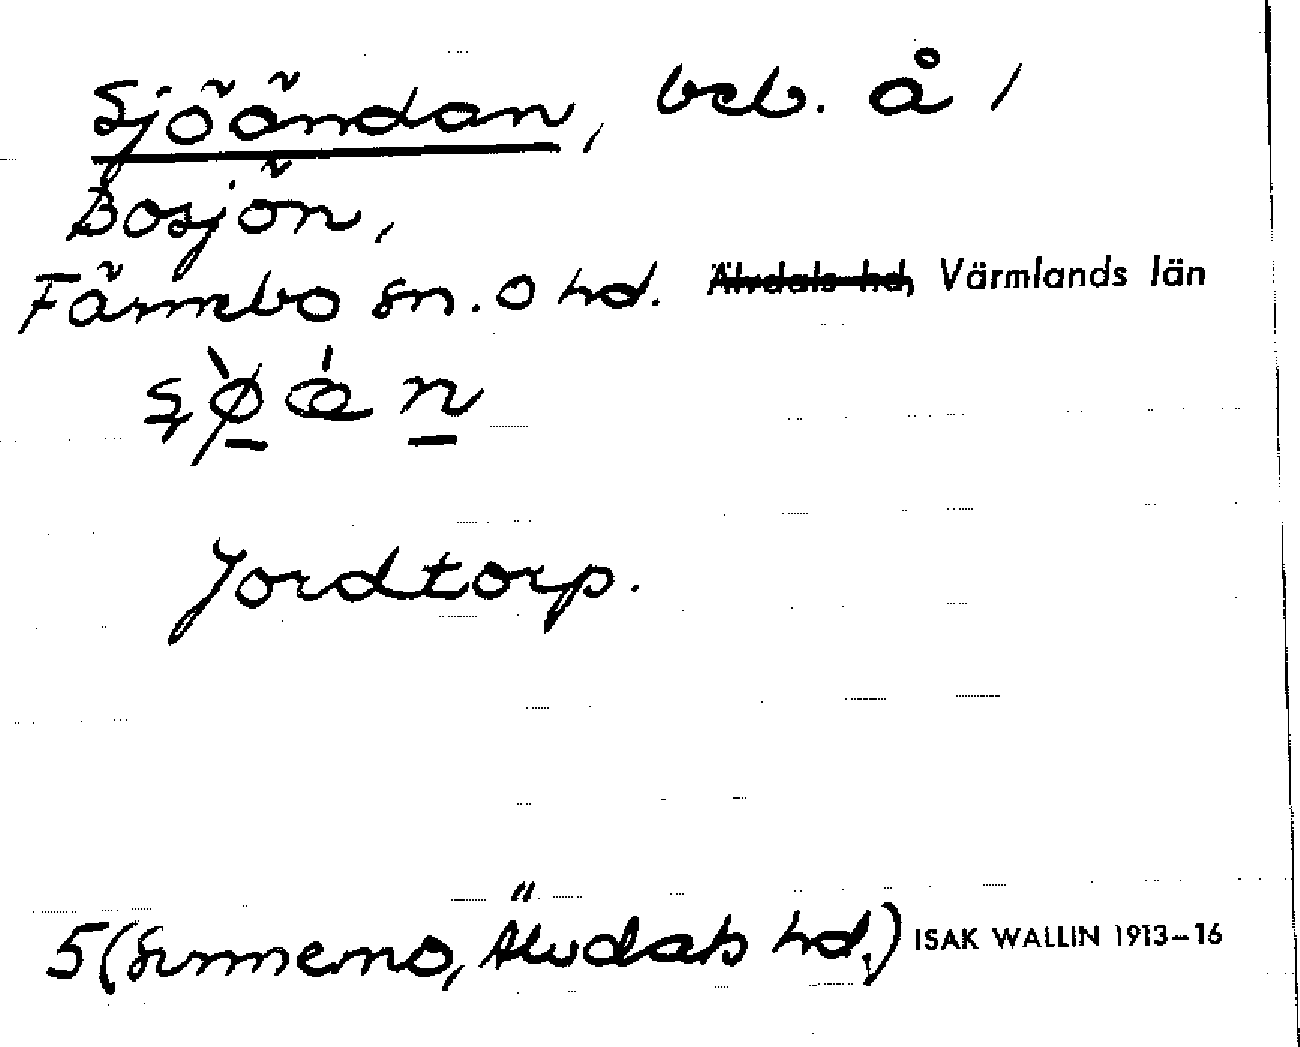 Sjöändan, beb. å 1
Bosjön,
Färnebo sn. o hd. Älvdals hd, Värmlands län
Jordtorp.
5 (Sunnemo, Älvdals hd.) ISAK WALLIN 1913–16